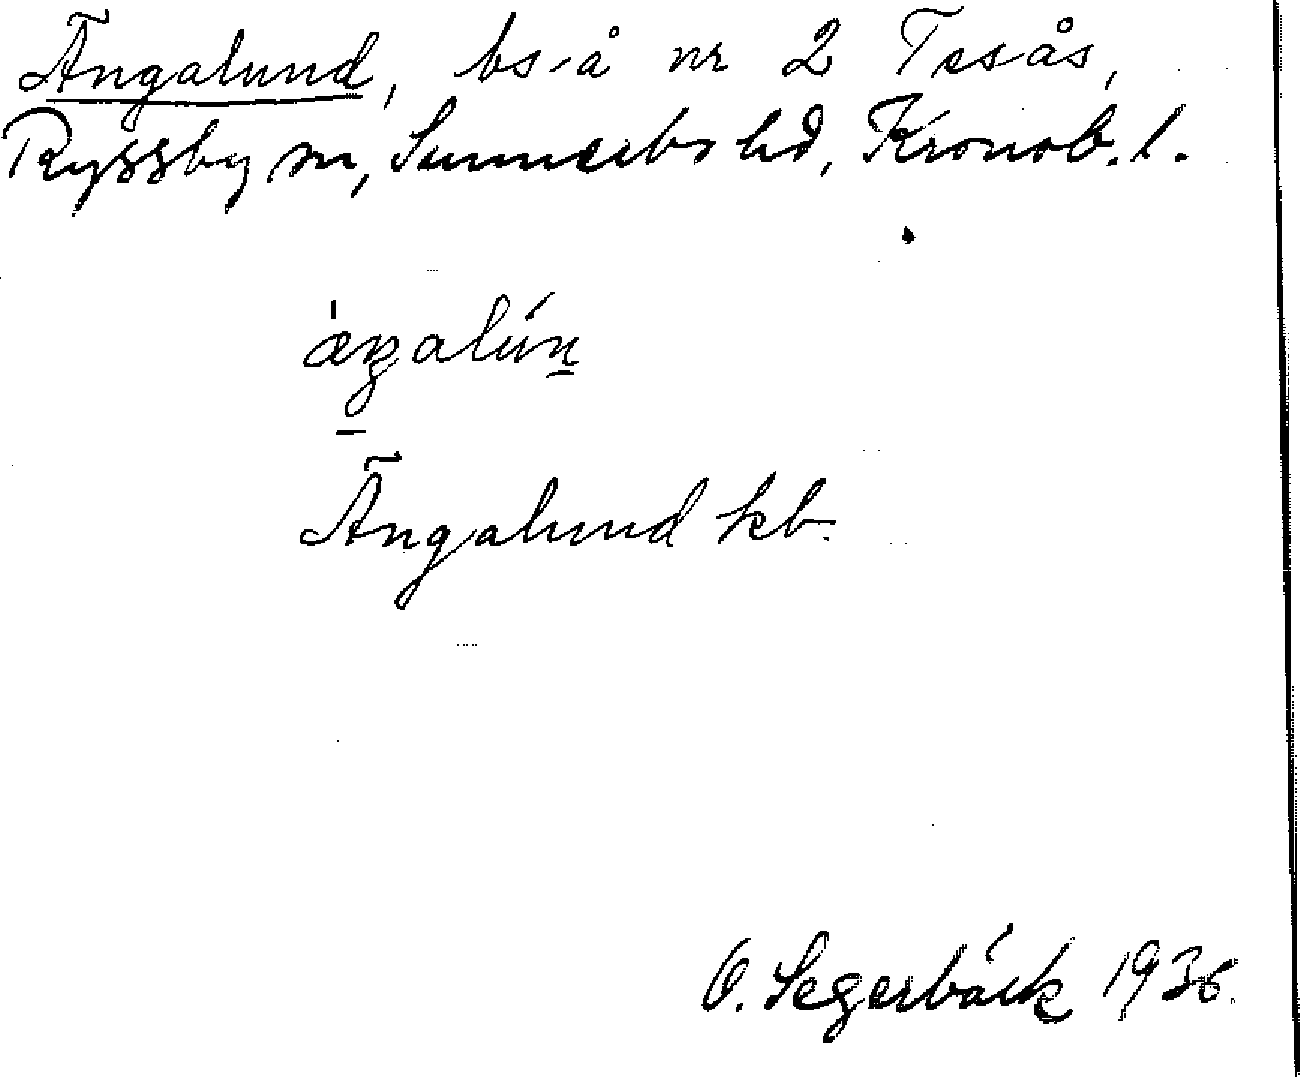 Ängalund, bs å nr 2 Tesås,
Ryssby sn, Sunnerbo hd, Kronob. l.
ængalún
Ängalund kb.
O. Segerbäck 1936.